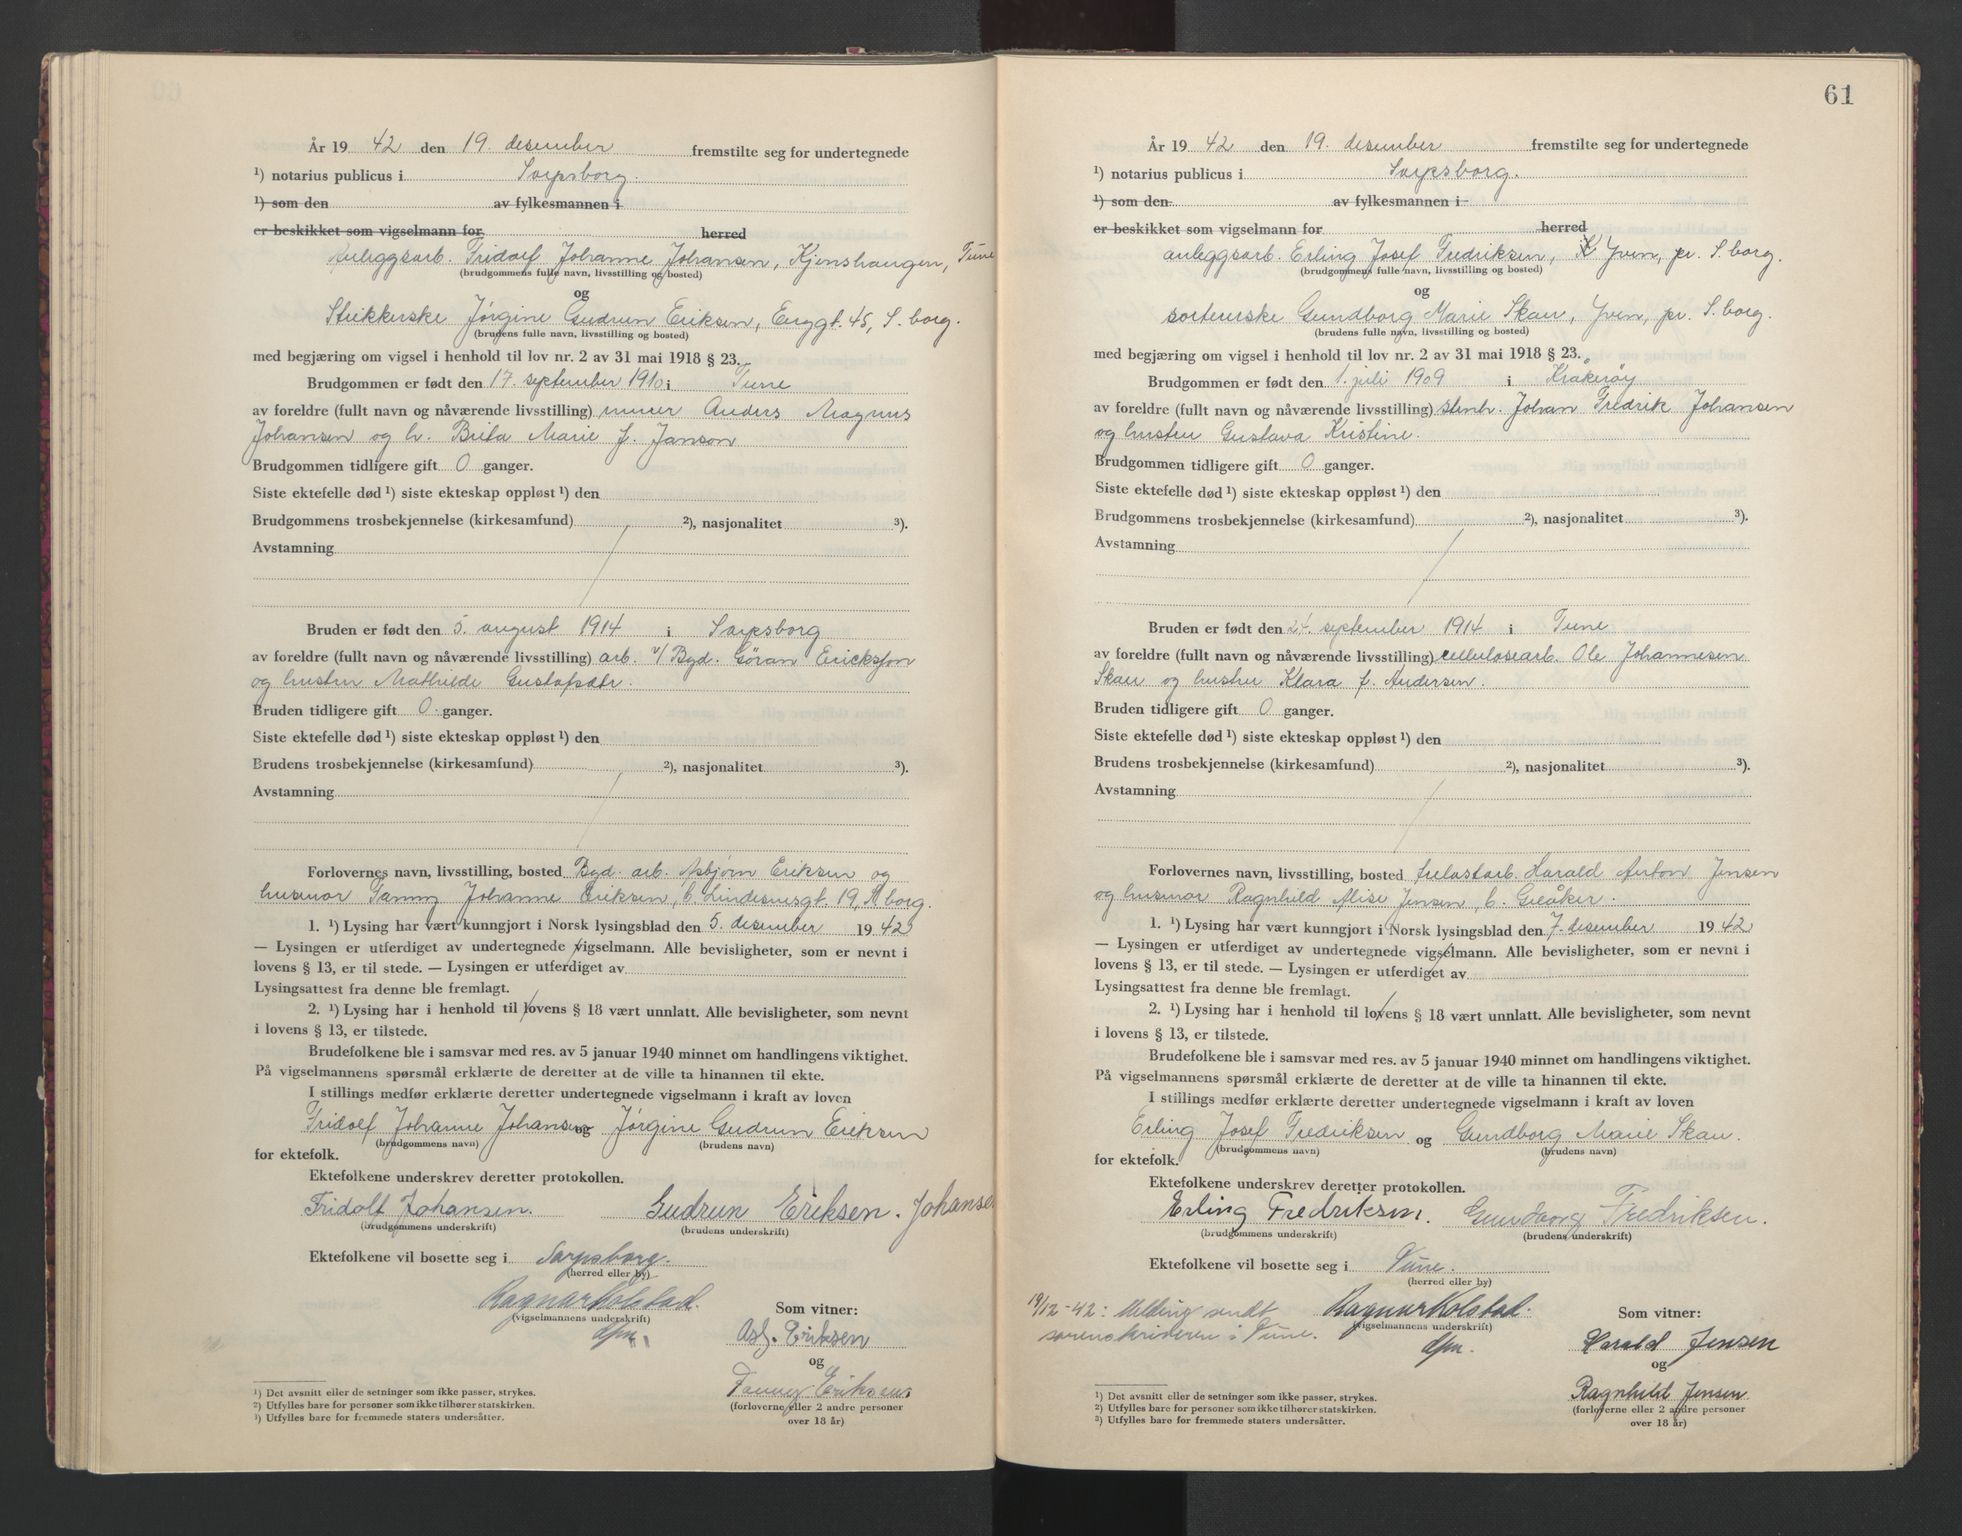 År 19 42 den 19. desember fremstilte seg for undertegnede
¹) notarius publicus i Sarpsborg.
¹) som den av fylkesmannen i
er beskikket som vigselmann for herred
Anleggsarb. Fridolf Johanne Johansen, Kjenshaugen, Tune
(brudgommens fulle navn, livsstilling og bosted)
og
Strikkerske Jørgine Gudrun Eriksen, Enggt. 45, S.borg.
(brudens fulle navn, livsstilling og bosted)
med begjæring om vigsel i henhold til lov nr. 2 av 31 mai 1918 § 23.
Brudgommen er født den 17. september 1910 i Tune
av foreldre (fullt navn og nåværende livsstilling) murer Anders Magnus
Johansen og h. Brita Marie f. Janson
Brudgommen tidligere gift 0 ganger.
Siste ektefelle død ¹) siste ekteskap oppløst ¹) den
Brudgommens trosbekjennelse (kirkesamfund) ²), nasjonalitet ³).
Avstamning
Bruden er født den 5. august 1914 i Sarpsborg
av foreldre (fullt navn og nåværende livsstilling) arb. v/Bgd. Göran Ericksson
og hustru Mathilde Gustafsdtr.
Bruden tidligere gift 0. ganger.
Siste ektefelle død ¹) siste ekteskap oppløst ¹) den
Brudens trosbekjennelse (kirkesamfund) ²), nasjonalitet ³).
Avstamning
Forlovernes navn, livsstilling, bosted Bgd. arb. Asbjørn Eriksen og
husmor Fanny Johanne Eriksen, b. Lindesnesgt. 19, S.borg.
1. ¹) Lysing har vært kunngjort i Norsk lysingsblad den 5. desember 1942
— Lysingen er utferdiget av undertegnede vigselmann. Alle bevisligheter, som er nevnt i
lovens § 13, er til stede. — Lysingen er utferdiget av
Lysingsattest fra denne ble fremlagt.
2. ¹) Lysing har i henhold til lovens § 18 vært unnlatt. Alle bevisligheter, som nevnt
i lovens § 13, er tilstede.
Brudefolkene ble i samsvar med res. av 5 januar 1940 minnet om handlingens viktighet.
På vigselmannens spørsmål erklærte de deretter at de ville ta hinannen til ekte.
I stillings medfør erklærte deretter undertegnede vigselmann i kraft av loven
Fridolf Johanne Johansen og Jørgine Gudrun Eriksen
(brudgommens navn) (brudens navn)
for ektefolk.
Ektefolkene underskrev deretter protokollen.
Fridolf Johansen. Gudrun Eriksen. Johansen
(brudgommens underskrift) (brudens underskrift)
Ektefolkene vil bosette seg i Sarpsborg.
(herred eller by)
Ragnar Kolstad. Som vitner:
(vigselmannens underskrift)
dfm. Asbj. Eriksen
og
Fanny Eriksen
(forloverne eller 2 andre personer
over 18 år)
¹) Det avsnitt eller de setninger som ikke passer, strykes.
²) Utfylles bare for personer som ikke tilhører statskirken.
³) Utfylles bare for fremmede staters undersåtter.
61
År 19 42 den 19. desember fremstilte seg for undertegnede
¹) notarius publicus i Sarpsborg.
¹) som den av fylkesmannen i
er beskikket som vigselmann for herred
anleggsarb. Erling Josef Fredriksen, Yven, pr. S.borg.
(brudgommens fulle navn, livsstilling og bosted)
og
sortererske Gundborg Marie Skau, Yven, pr. S.borg.
(brudens fulle navn, livsstilling og bosted)
med begjæring om vigsel i henhold til lov nr. 2 av 31 mai 1918 § 23.
Brudgommen er født den 1. juli 1909 i Kråkerøy
av foreldre (fullt navn og nåværende livsstilling) stenh. Johan Fredrik Johansen
og hustru Gustava Kristine.
Brudgommen tidligere gift 0 ganger.
Siste ektefelle død ¹) siste ekteskap oppløst ¹) den
Brudgommens trosbekjennelse (kirkesamfund) ²), nasjonalitet ³).
Avstamning
Bruden er født den 24. september 1914 i Tune
av foreldre (fullt navn og nåværende livsstilling) cellulosearb. Ole Johannesen
Skau og hustru Klara f. Andersen.
Bruden tidligere gift 0 ganger.
Siste ektefelle død ¹) siste ekteskap oppløst ¹) den
Brudens trosbekjennelse (kirkesamfund) ²), nasjonalitet ³).
Avstamning
Forlovernes navn, livsstilling, bosted trelastarb. Harald Anton Jensen
og husmor Ragnhild Alise Jensen, b. Greåker.
1. ¹) Lysing har vært kunngjort i Norsk lysingsblad den 7. desember 1942
— Lysingen er utferdiget av undertegnede vigselmann. Alle bevisligheter, som er nevnt i
lovens § 13, er til stede. — Lysingen er utferdiget av
Lysingsattest fra denne ble fremlagt.
2. ¹) Lysing har i henhold til lovens § 18 vært unnlatt. Alle bevisligheter, som nevnt
i lovens § 13, er tilstede.
Brudefolkene ble i samsvar med res. av 5 januar 1940 minnet om handlingens viktighet.
På vigselmannens spørsmål erklærte de deretter at de ville ta hinannen til ekte.
I stillings medfør erklærte deretter undertegnede vigselmann i kraft av loven
Erling Josef Fredriksen og Gundborg Marie Skau.
(brudgommens navn) (brudens navn)
for ektefolk.
Ektefolkene underskrev deretter protokollen.
Erling Fredriksen. Gundborg Fredriksen.
(brudgommens underskrift) (brudens underskrift)
Ektefolkene vil bosette seg i Tune.
(herred eller by)
19/12-42: Melding sendt Ragnar Kolstad. Som vitner:
sorenskriveren i Tune. (vigselmannens underskrift)
dfm. Harald Jensen
og
Ragnhild Jensen
(forloverne eller 2 andre personer
over 18 år)
¹) Det avsnitt eller de setninger som ikke passer, strykes.
²) Utfylles bare for personer som ikke tilhører statskirken.
³) Utfylles bare for fremmede staters undersåtter.